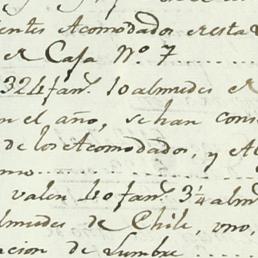 entes Acomodados eresta
er Casa Nº 7
324 fanˢ. 10 almudes
en el año, se han cons
de los Acomodados, y
valen 40 fanˢ. 3¼ alm
lmudes de Chile, uno,
acion de Lumbre